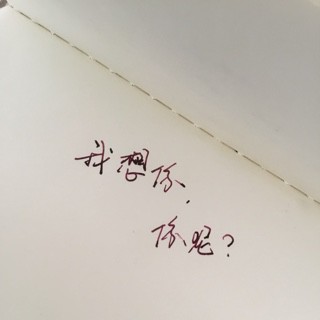 我想你，
你呢？